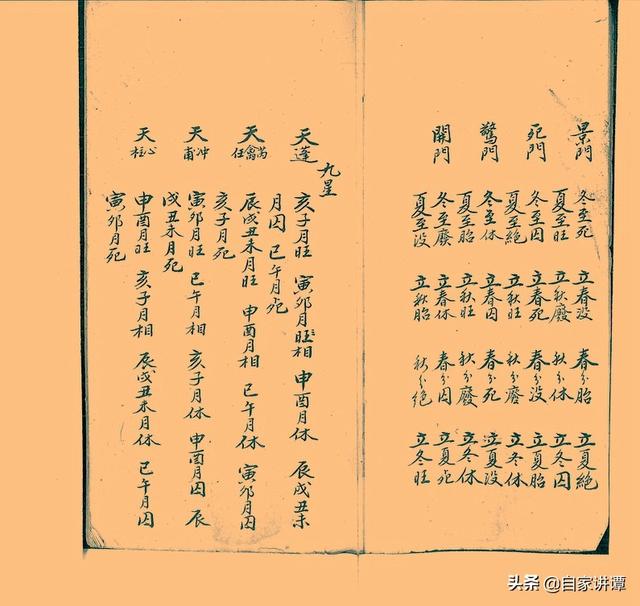 景門 冬至死 立春没 春分胎 立夏絶
夏至旺 立秋廢 秋分休 立冬囚
死門 冬至囚 立春死 春分没 立夏胎
夏至絶 立秋旺 秋分廢 立冬休
驚門 冬至休 立春囚 春分死 立夏没
夏至胎 立秋旺 秋分廢 立冬休
開門 冬至廢 立春休 春分囚 立夏死
夏至没 立秋胎 秋分絶 立冬旺
九星
天蓬 亥子月旺 寅卯月旺相 申酉月休 辰戌丑未
月囚 巳午月死
天芮禽任 辰戌丑未月旺 申酉月相 巳午月休 寅卯月囚
亥子月死
天冲甫 寅卯月旺 巳午月相 亥子月休 申酉月囚 辰
戌丑未月死
天心柱 申酉月旺 亥子月相 辰戌丑未月休 巳午月囚
寅卯月死
头条 @自家讲谭